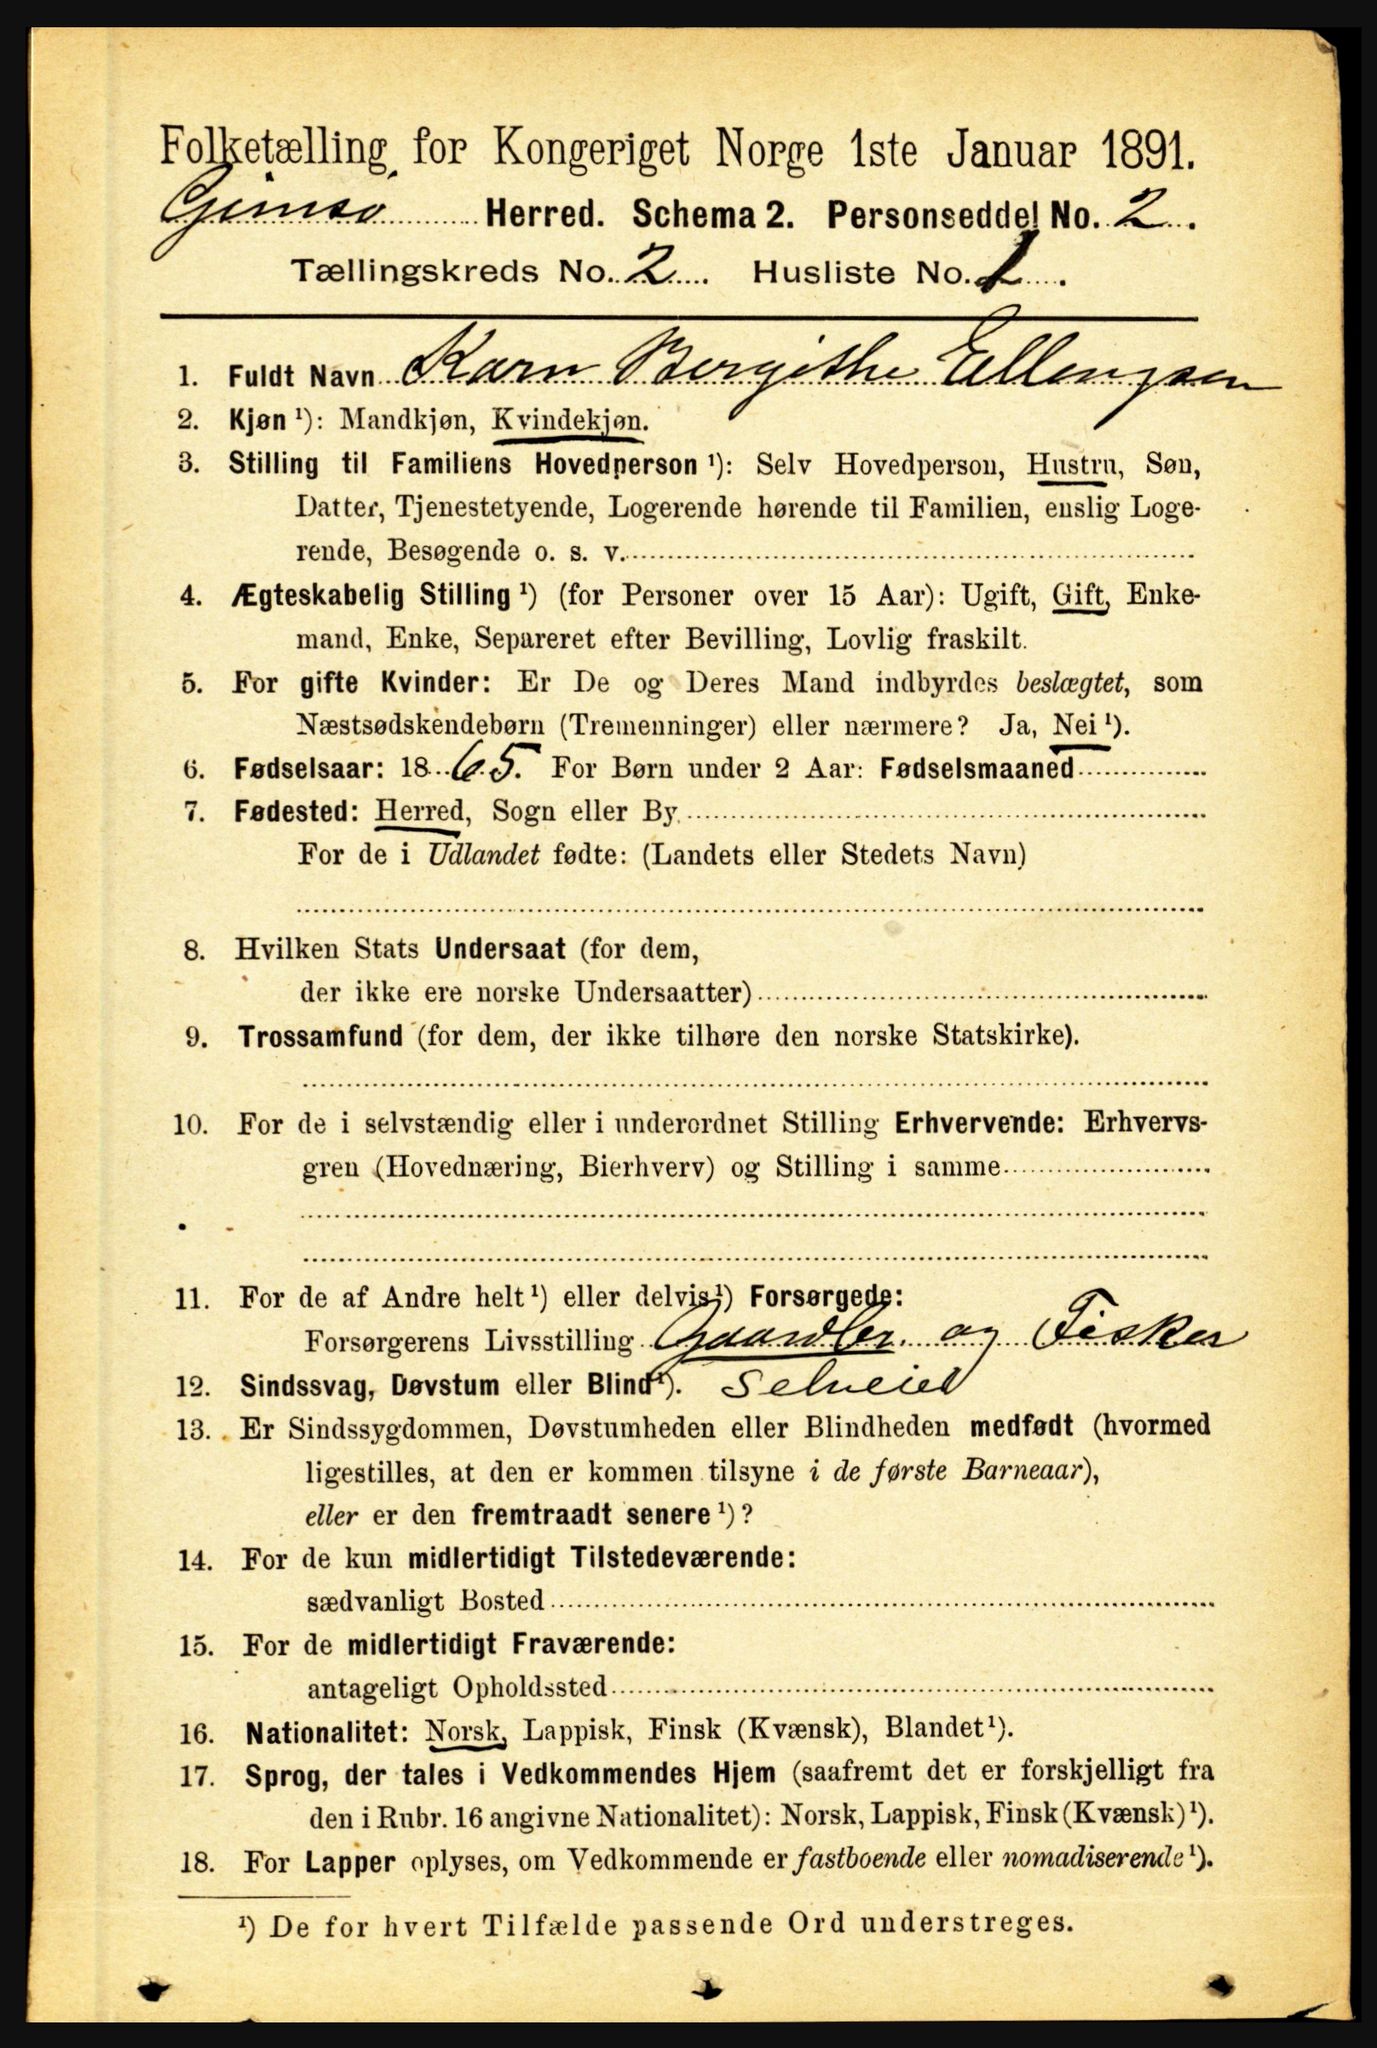 Folketælling for Kongeriget Norge 1ste Januar 1891.
Gimsø Herred. Schema 2. Personseddel No. 2.
Tællingskreds No. 2. Husliste No. 1.
1. Fuldt Navn Karn Bergithe Ellengsen
2. Kjøn ¹): Mandkjøn, Kvindekjøn.
3. Stilling til Familiens Hovedperson ¹): Selv Hovedperson, Hustru, Søn,
Datter, Tjenestetyende, Logerende hørende til Familien, enslig Loge-
rende, Besøgende o. s. v.
4. Ægteskabelig Stilling ¹) (for Personer over 15 Aar): Ugift, Gift, Enke-
mand, Enke, Separeret efter Bevilling, Lovlig fraskilt.
5. For gifte Kvinder: Er De og Deres Mand indbyrdes beslægtet, som
Næstsødskendebørn (Tremenninger) eller nærmere? Ja, Nei ¹).
6. Fødselsaar: 1865. For Børn under 2 Aar: Fødselsmaaned
7. Fødested: Herred, Sogn eller By
For de i Udlandet fødte: (Landets eller Stedets Navn)
8. Hvilken Stats Undersaat (for dem,
der ikke ere norske Undersaatter)
9. Trossamfund (for dem, der ikke tilhøre den norske Statskirke).
10. For de i selvstændig eller i underordnet Stilling Erhvervende: Erhvervs-
gren (Hovednæring, Bierhverv) og Stilling i samme
11. For de af Andre helt ¹) eller delvis ¹) Forsørgede:
Forsørgerens Livsstilling Gaardbr. og Fisker
12. Sindssvag, Døvstum eller Blind ¹). Selveier
13. Er Sindssygdommen, Døvstumheden eller Blindheden medfødt (hvormed
ligestilles, at den er kommen tilsyne i de første Barneaar),
eller er den fremtraadt senere ¹)?
14. For de kun midlertidigt Tilstedeværende:
sædvanligt Bosted
15. For de midlertidigt Fraværende:
antageligt Opholdssted
16. Nationalitet: Norsk, Lappisk, Finsk (Kvænsk), Blandet ¹).
17. Sprog, der tales i Vedkommendes Hjem (saafremt det er forskjelligt fra
den i Rubr. 16 angivne Nationalitet): Norsk, Lappisk, Finsk (Kvænsk) ¹).
18. For Lapper oplyses, om Vedkommende er fastboende eller nomadiserende ¹).
¹) De for hvert Tilfælde passende Ord understreges.